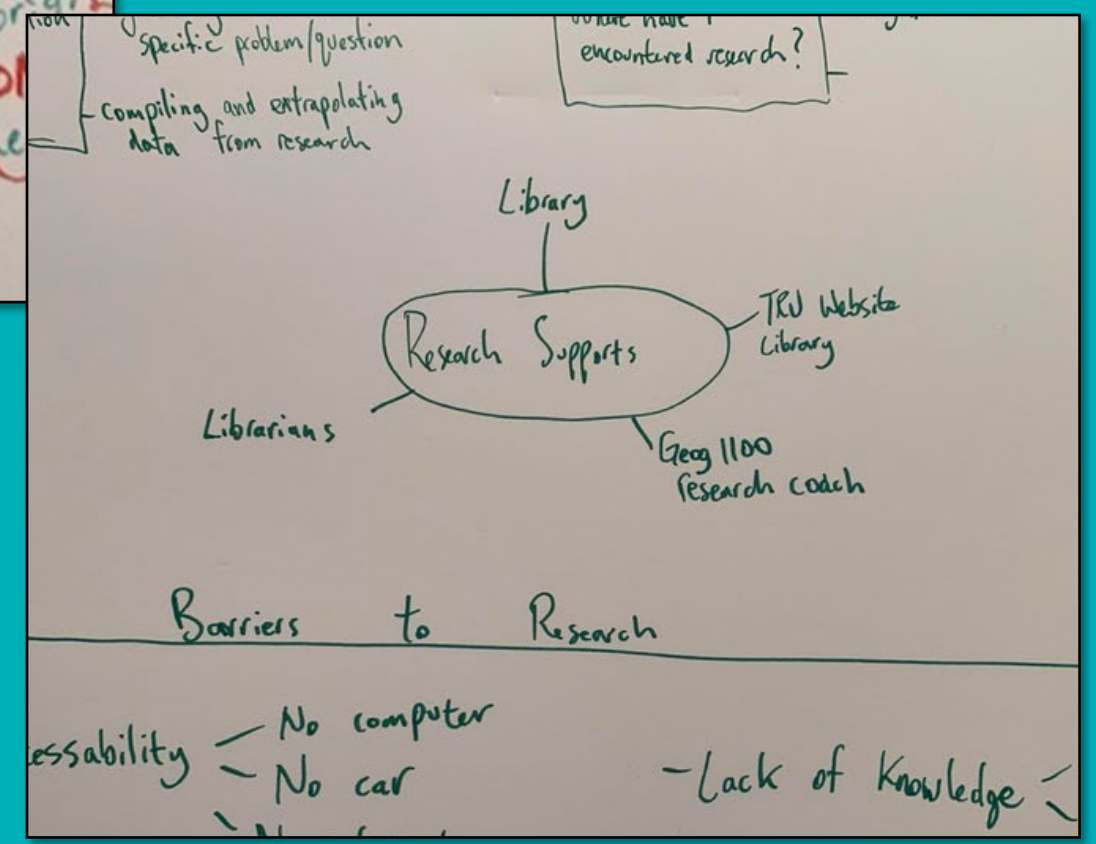 specific problem/question
- compiling and extrapolating
data from research
encountered research?
Library
Research Supports
TRU Website
Library
Librarians
Geog 1100
research coach
Barriers to Research
essability
No computer
No car
- Lack of Knowledge